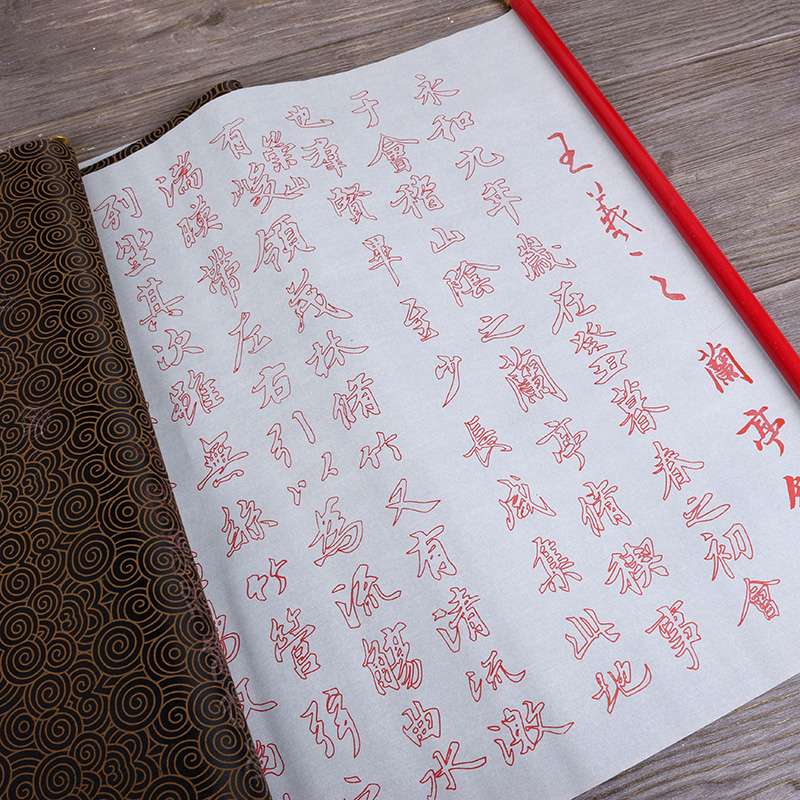 王羲之 蘭亭
永和九年歲在癸丑暮春之初會
于會稽山陰之蘭亭脩禊事
也羣賢畢至少長咸集此地
有崇山峻領茂林脩竹又有清流激
湍暎帶左右引以為流觴曲水
列坐其次雖無絲竹管弦之